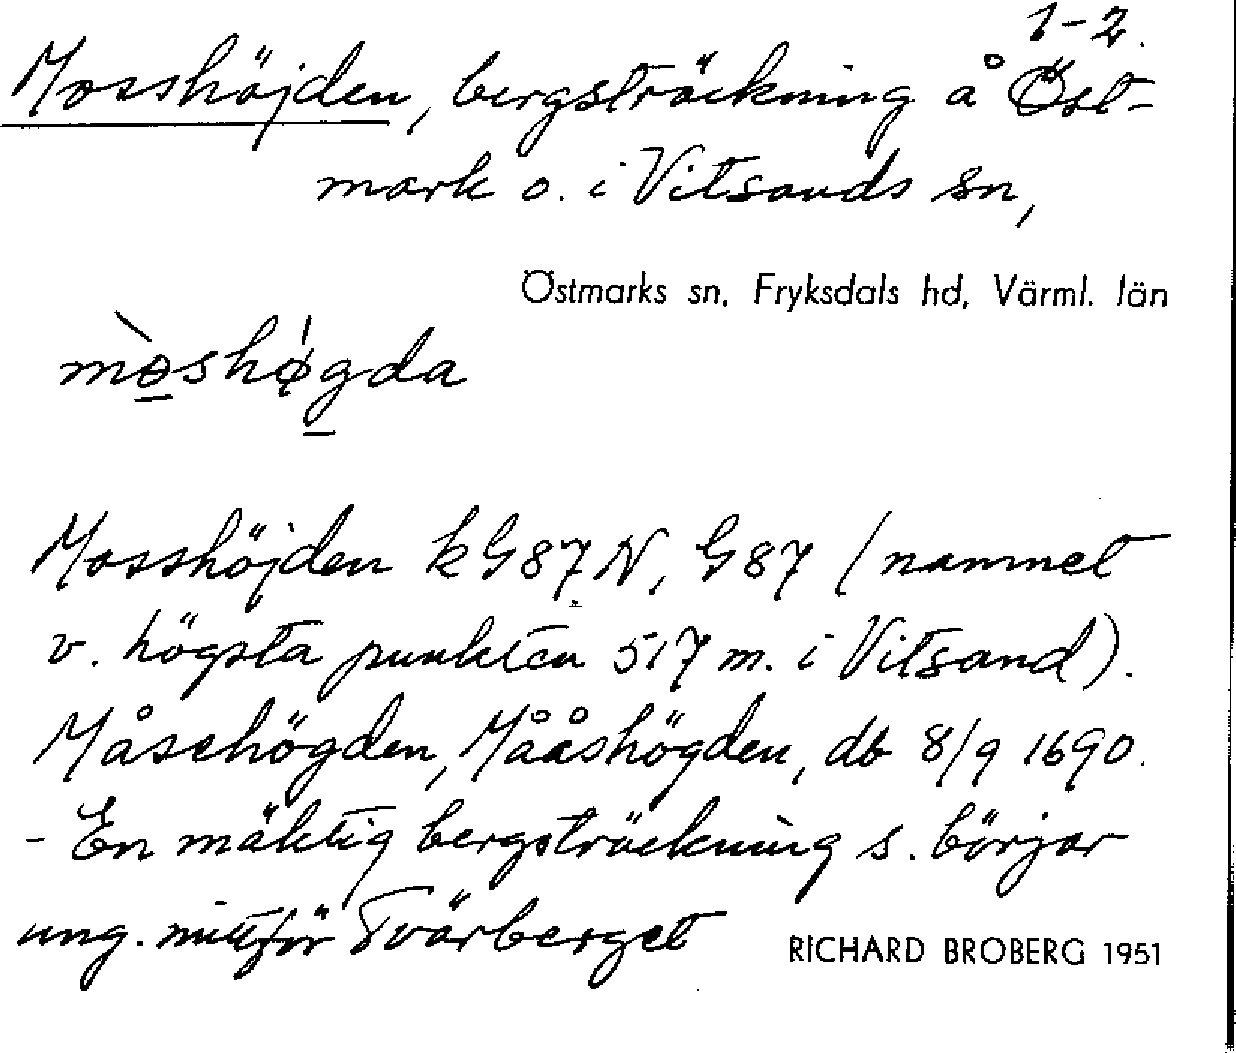 1-2.
Mosshöjden, bergsträckning å Öst-
mark o. i Vitsands sn,
Östmarks sn, Fryksdals hd, Värml. län
mòshø̍gda
Mosshöjden kG87N, G87 (namnet
v. högsta punkten 517 m. i Vitsand).
Måsehögden, Mååshögden, db 8/9 1690.
- En mäktig bergsträckning s. börjar
ung. mitt för Tvärberget
RICHARD BROBERG 1951